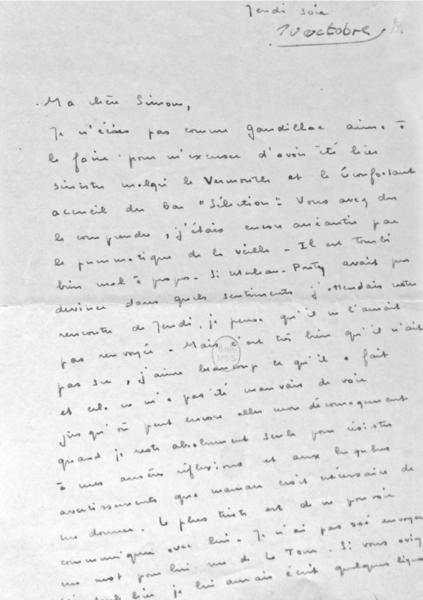 Jeudi soir
10 octobre
Ma chère Simone,
Je n'écris pas comme Gandillac aime à
le faire pour m'excuser d'avoir été bien
sinistre malgré le Vermouth et le réconfortant
accueil du bar "Sélection". Vous avez dû
le comprendre, j'étais encore anéantie par
le pneumatique de la veille - Il est tombé
bien mal à propos. Si Merleau-Ponty avait pu
deviner dans quels sentiments j'attendais notre
rencontre de Jeudi, je pense qu'il ne l'aurait
pas renvoyée - Mais c'est très bien qu'il n'ait
pas su, j'aime beaucoup ce qu'il a fait
et cela ne m'a pas été mauvais de voir
jusqu'où peut encore aller mon découragement
quand je reste absolument seule pour résister
à mes amères réflexions et aux lugubres
avertissements que maman croit nécessaire de
me donner. Le plus triste est de ne pouvoir
communiquer avec lui. Je n'ai pas osé envoyer
un mot pour lui rue de la Tour. Si vous aviez
je lui aurais écrit quelques lignes